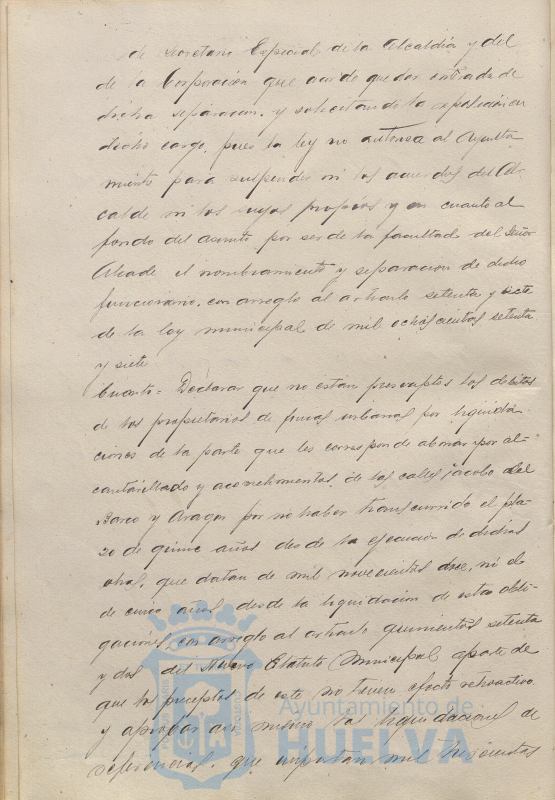 de Secretario Especial de la Alcaldía y del
de la Corporación que acordó quedar enterada de
dicha separación, y solicitando la reposición en
dicho cargo, pues la ley no autoriza al Ayunta-
miento para suspender ni los acuerdos del Al-
calde ni los suyos propios y en cuanto al
fondo del asunto por ser de la facultad del Señor
Alcalde el nombramiento y separación de dicho
funcionario, con arreglo al artículo setenta y siete
de la ley municipal de mil ochocientos setenta
y siete
Cuarto = Declarar que no están prescriptos los débitos
de los propietarios de fincas urbanas por liquida-
ciones de la parte que les corresponde abonar por al-
cantarillado y acometimentos de las calles Jacobo del
Barco y Aragón por no haber transcurrido el pla-
zo de quince años desde la ejecución de dichas
obras, que datan de mil novecientos doce, ni el
de cinco años desde la liquidación de estas obli-
gaciones, con arreglo al artículo quinientos setenta
y dos del Nuevo Estatuto Municipal aparte de
que los preceptos de este no tienen efecto retroactivo
y aprobar asi mismo las liquidaciones de
referencia, que importan mil trescientas
Ayuntamiento de
HUELVA